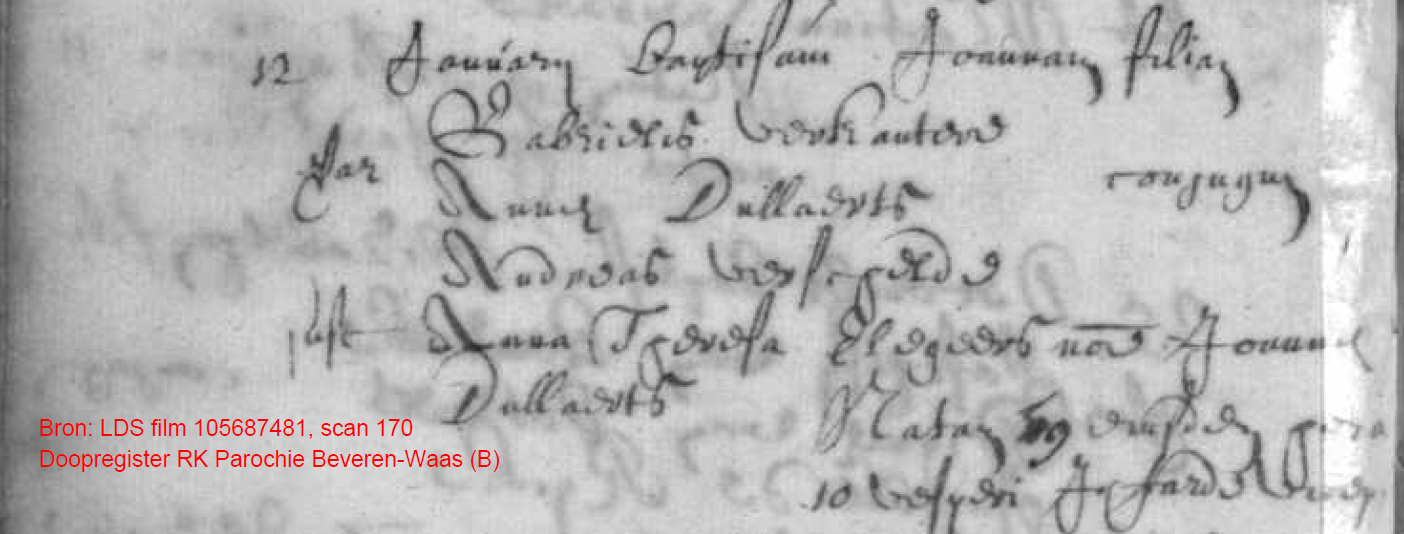 12 Januarij Baptisavi Joannam filiam
Gabrielis verkautere
Par Annæ Dullaerts conjugum
Andreas verschelde
sust Anna Theresa Elegeers noē Joannæ
Dullaerts
Natam 9 eiusdem hora
10 vesperi
Bron: LDS film 105687481, scan 170
Doopregister RK Parochie Beveren-Waas (B)